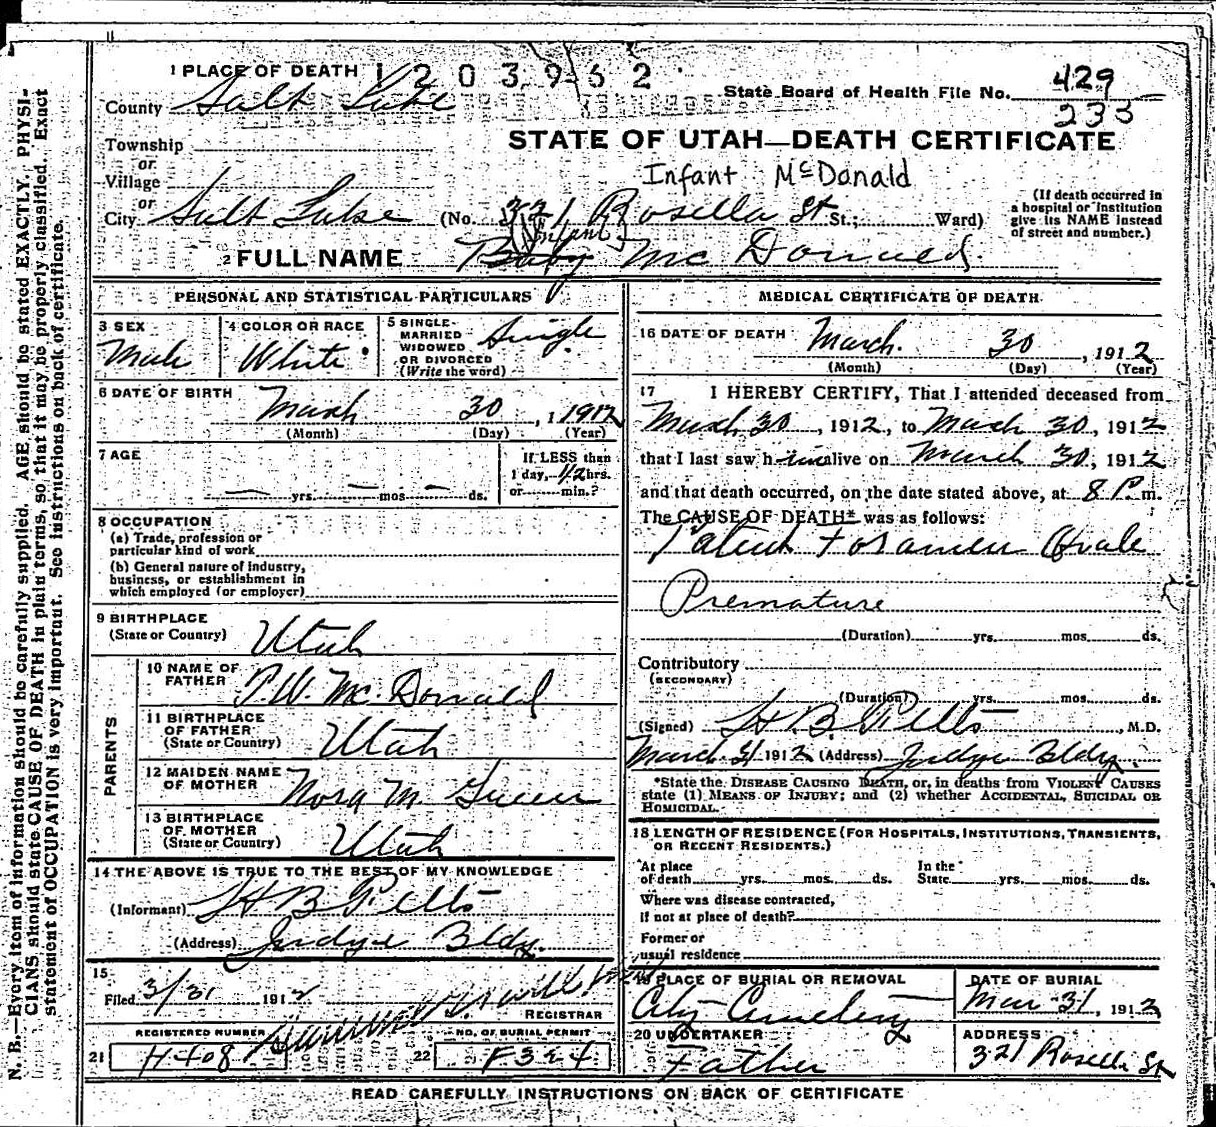 1 PLACE OF DEATH 1203962
County Salt Lake
State Board of Health File No. 429
233
Township
or
Village
or
City Salt Lake (No. 321 Rosella St St.; Ward)
STATE OF UTAH—DEATH CERTIFICATE
Infant McDonald
(If death occurred in
a hospital or institution
give its NAME instead
of street and number.)
(Infant)
2 FULL NAME Baby Mc Donald
PERSONAL AND STATISTICAL PARTICULARS
3 SEX
Male
4 COLOR OR RACE
White
5 SINGLE
MARRIED
WIDOWED
OR DIVORCED
(Write the word)
Single
6 DATE OF BIRTH March 30, 1 1912
(Month) (Day) (Year)
7 AGE
— yrs. — mos — ds.
If LESS than
1 day, 1/2 hrs.
or min.?
8 OCCUPATION
(a) Trade, profession or
particular kind of work
(b) General nature of industry,
business, or establishment in
which employed (or employer)
9 BIRTHPLACE
(State or Country) Utah
PARENTS
10 NAME OF
FATHER P.W. Mc Donald
11 BIRTHPLACE
OF FATHER
(State or Country) Utah
12 MAIDEN NAME
OF MOTHER Nora M.
13 BIRTHPLACE
OF MOTHER
(State or Country) Utah
14 THE ABOVE IS TRUE TO THE BEST OF MY KNOWLEDGE
(Informant) H B
(Address) Judge Bldg.
15
Filed 3/31 1912
REGISTRAR
REGISTERED NUMBER
21 H408
NO. OF BURIAL PERMIT
22 F324
MEDICAL CERTIFICATE OF DEATH
16 DATE OF DEATH March. 30, 1912
(Month) (Day) (Year)
17 I HEREBY CERTIFY, That I attended deceased from
March 30, 1912, to March 30, 1912
that I last saw him alive on March 30, 1912
and that death occurred, on the date stated above, at 8 P. m.
The CAUSE OF DEATH* was as follows:
Patent Foramen Ovale
Premature
(Duration) yrs. mos. ds.
Contributory
(SECONDARY)
(Duration) yrs. mos. ds.
(Signed) H B , M.D.
March 31 1912 (Address) Judge Bldg.
*State the DISEASE CAUSING DEATH, or, in deaths from VIOLENT CAUSES
state (1) MEANS OF INJURY; and (2) whether ACCIDENTAL, SUICIDAL OR
HOMICIDAL.
18 LENGTH OF RESIDENCE (FOR HOSPITALS, INSTITUTIONS, TRANSIENTS,
OR RECENT RESIDENTS.)
At place
of death yrs. mos. ds.
In the
State yrs. mos. ds.
Where was disease contracted,
if not at place of death?
Former or
usual residence
19 PLACE OF BURIAL OR REMOVAL
City Cemetery
DATE OF BURIAL
Mar 31, 1912
20 UNDERTAKER
Father
ADDRESS
321 Rosella St
READ CAREFULLY INSTRUCTIONS ON BACK OF CERTIFICATE
N. B.—Every item of information should be carefully supplied. AGE should be stated EXACTLY. PHYSI-
CIANS should state CAUSE OF DEATH in plain terms, so that it may be properly classified. Exact
statement of OCCUPATION is very important. See instructions on back of certificate.